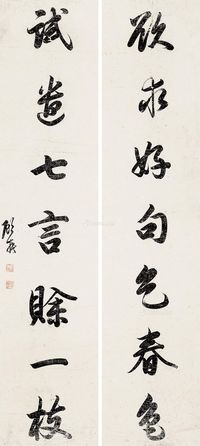 欲求好句乞春色
試遣七言賒一枝